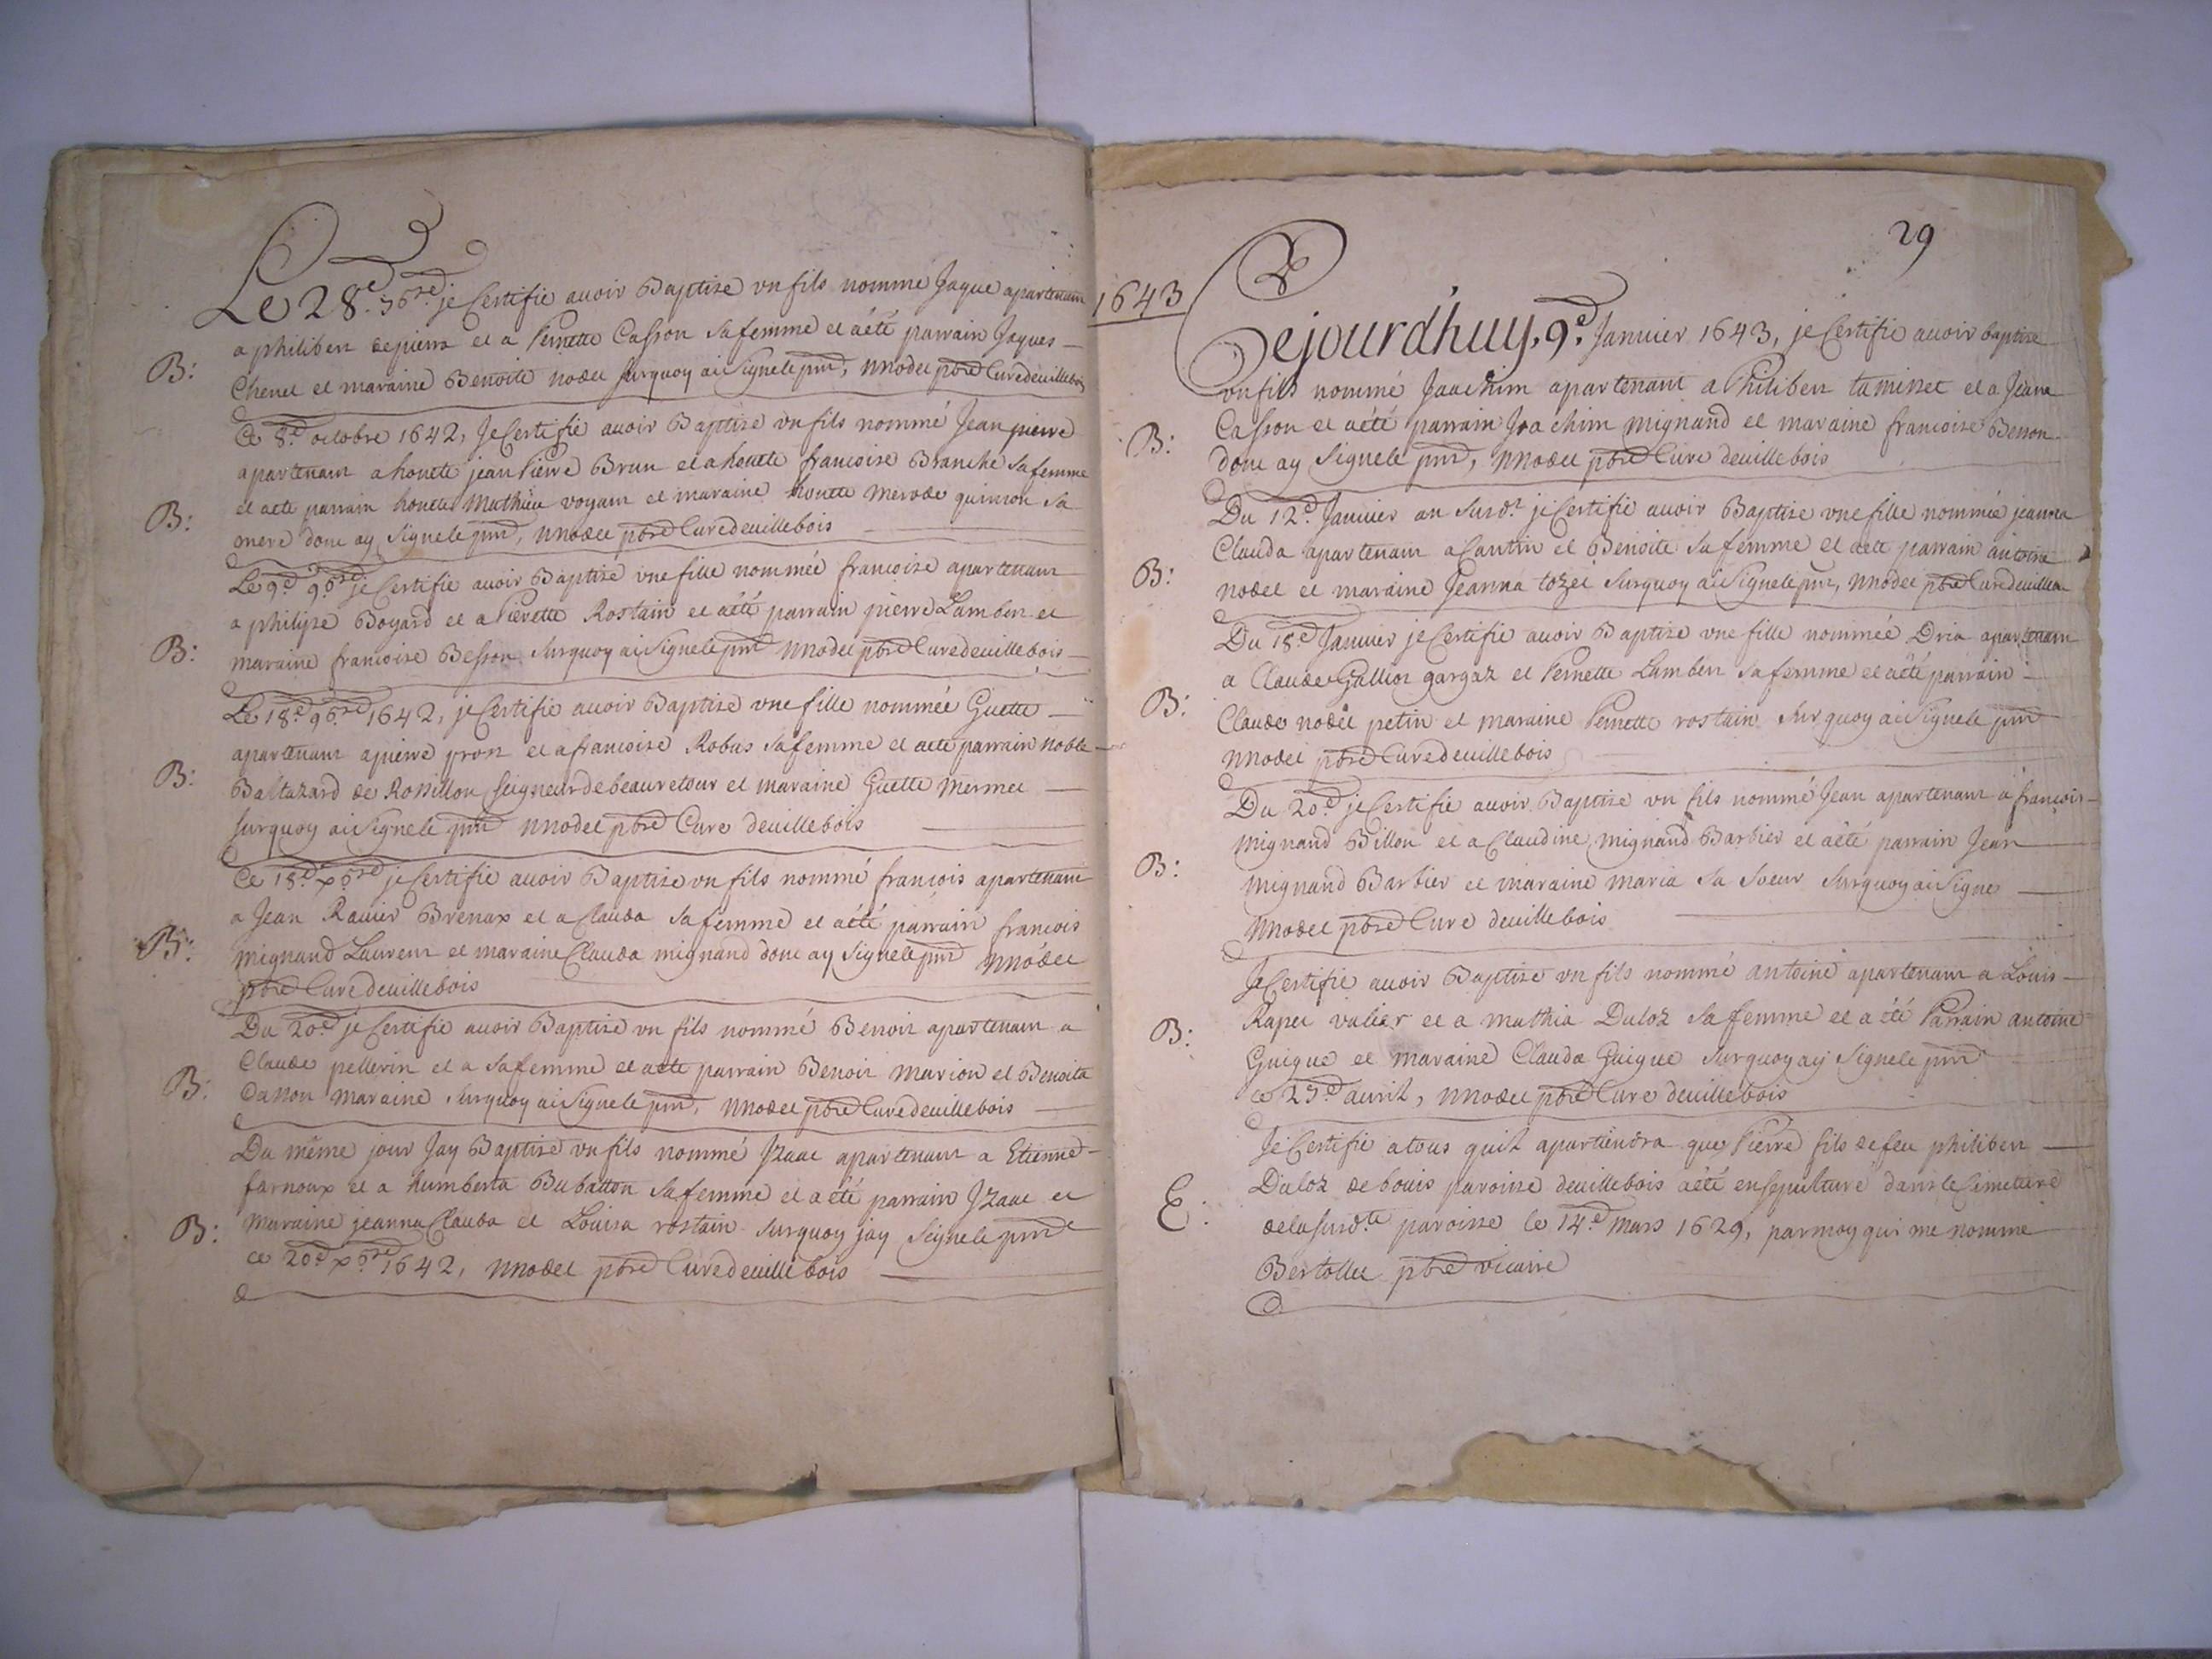 Le 28.e 7bre. je Certifie auoir Baptize vn fils nommé Jaque apartenam
a philiber depierre et a Pernette Casson sa femme et a èté parrain Jaques
B: Chenet et maraine Benoite nodet surquoy ai signe le pnt, nnodet pbre Curé deuillebois
Ce 8.e octobre 1642, Je Certifie auoir Baptize vn fils nommé Jean pierre
apartenam a honete jean Pierre Brun et a honete francoise Branche sa femme
et a ete parrain honete Mathieu voyam et maraine honette merode quinson sa
B: mere donc ay signe le pnt, nnodet pbre Curé deuillebois
Le 9.e 9bre je Certifie auoir Baptizé vne fille nommée francoise apartenam
a philipe Boyard et a Pierette Rostain et a èté parrain pierre Lamber et
B: maraine francoise Besson surquoy ai signe le pnt nnodet pbre Curé deuillebois
Le 18.e 9bre 1642, je Certifie auoir Baptize vne fille nommée Guette
apartenam a pierre pron et a francoise Robus sa femme et a ete parrain noble
B: Baltazard de Rossillon seigneur de beauretour et maraine Guette mermet
surquoy ai signe le pnt nnodet pbre Cure deuillebois
Ce 18.e xbre je Certifie auoir Baptize vn fils nommé francois apartenam
a Jean Rauier Brenax et a Clauda sa femme et a èté parrain francois
B: mignand Laurem et maraine Clauda mignand donc ay signe le pnt nnodet
pbre Curé deuillebois
Du 20.e je Certifie auoir Baptize vn fils nommé Benoit apartenam a
Claude pellerin et a sa femme et a ete parrain Benoit marion et Benoita
B: Casson maraine surquoy ai signe le pnt, nnodet pbre Curé deuillebois
Du même jour Jay Baptize vn fils nommé Jzaac apartenam a Etienne
farnoux et a humberta Bubatton sa femme et a èté parrain Jzaac et
B: maraine jeanna Clauda et Louisa rostain surquoy jay signe le pnt
ce 20.e xbre 1642, nnodet pbre Curé deuillebois
29
1643
Cejourd'huy, 9.e Januier 1643, je Certifie auoir baptize
vn fils nommé Joachim apartenam a Philiber taminet et a Jeana
B: Casson et a èté parrain Joachim mignand et maraine francoise Besson
donc ay signe le pnt, nnodet pbre Cure deuillebois
Du 12.e Januier an susdt je Certifie auoir Baptize vne fille nommée jeanna
Clauda apartenam a Cantin et Benoite sa femme et a ete parrain antoine
B: nodet et maraine Jeanna tozei surquoy ai signe le pnt, nnodet pbre Curé deuillebois
Du 18.e Januier je Certifie auoir Baptize vne fille nommée Dria apartenam
a Claude Gallior gargaz et Pernette Lamber sa femme et a èté parrain
B: Claude nodet petin et maraine Pernette rostain surquoy ai signe le pnt
nnodet pbre Curé deuillebois
Du 20.e je Certifie auoir Baptize vn fils nommé Jean apartenam a francois
mignand Billon et a Claudine mignand Barbier et a èté parrain Jean
B: mignand Barbier et maraine maria sa soeur surquoy ai signe
nnodet pbre Cure deuillebois
Je Certifie auoir Baptize vn fils nommé antoine apartenam a Louis
Rapet valier et a mathia Duloz sa femme et a èté Parrain antoine
B: Guigue et maraine Clauda Guigue surquoy ay signe le pnt
ce 27.e auril, nnodet pbre Cure deuillebois
Je Certifie a tous quil apartiendra que Pierre fils de feu philiber
E: Duloz de bouis paroisse deuillebois a èté ensepulturé dans le Cimetiere
de la susd.te paroisse le 14.e mars 1629, par moy qui me nomme
Bertollet pbre vicaire